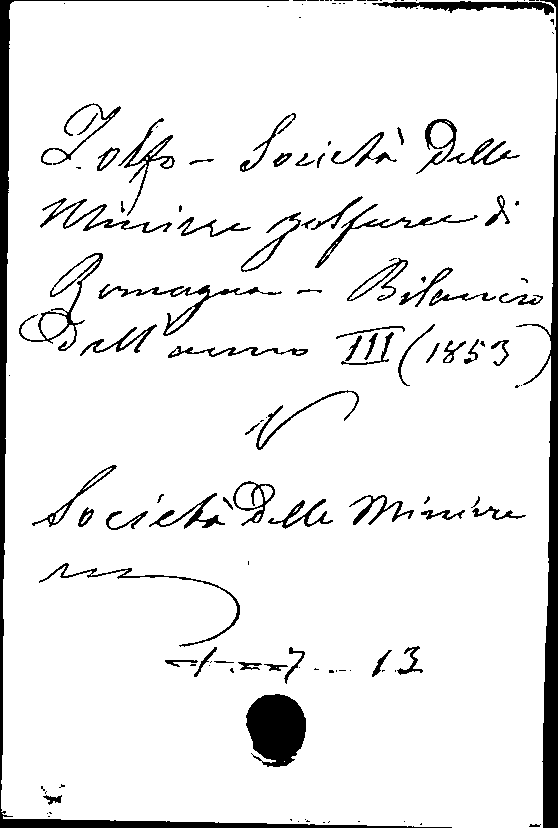 Zolfo – Società Delle
Miniere zolfuree di
Romagna – Bilancio
Dell'anno III (1853)
V
Società Delle Miniere
13